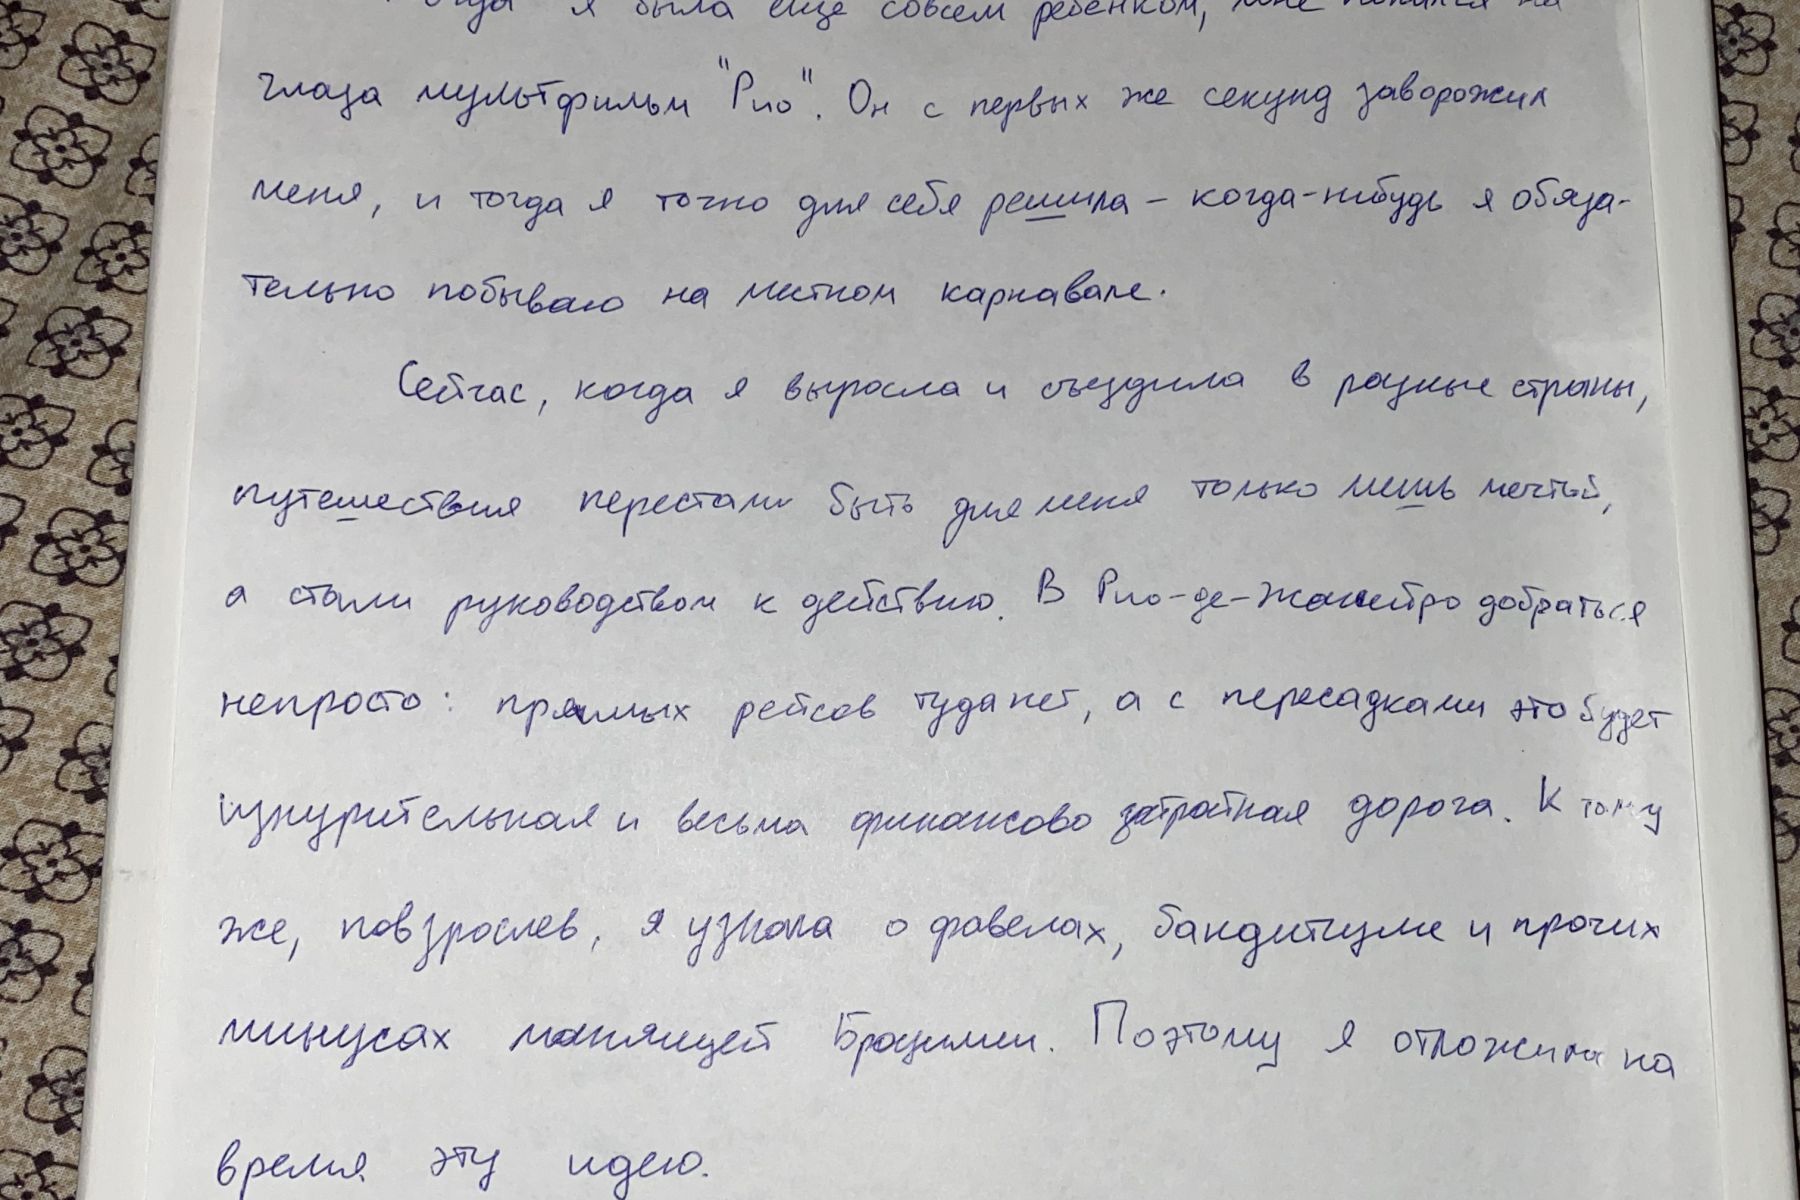 Когда я была ещё совсем ребёнком, мне попался на
глаза мультфильм "Рио". Он с первых же секунд заворожил
меня, и тогда я точно для себя решила - когда-нибудь я обяза-
тельно побываю на местном карнавале.
Сейчас, когда я выросла и съездила в разные страны,
путешествия перестали быть для меня только лишь мечтой,
а стали руководством к действию. В Рио-де-Жанейро добраться
непросто: прямых рейсов туда нет, а с пересадками это будет
изнурительная и весьма финансово затратная дорога. К тому
же, повзрослев, я узнала о фавелах, бандитизме и прочих
минусах манящей Бразилии. Поэтому я отложила на
время эту идею.